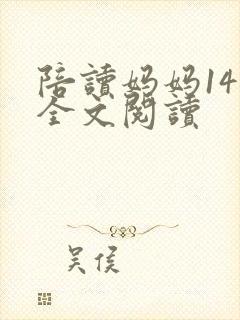 陪讀妈妈14
全文閱讀
吴侯